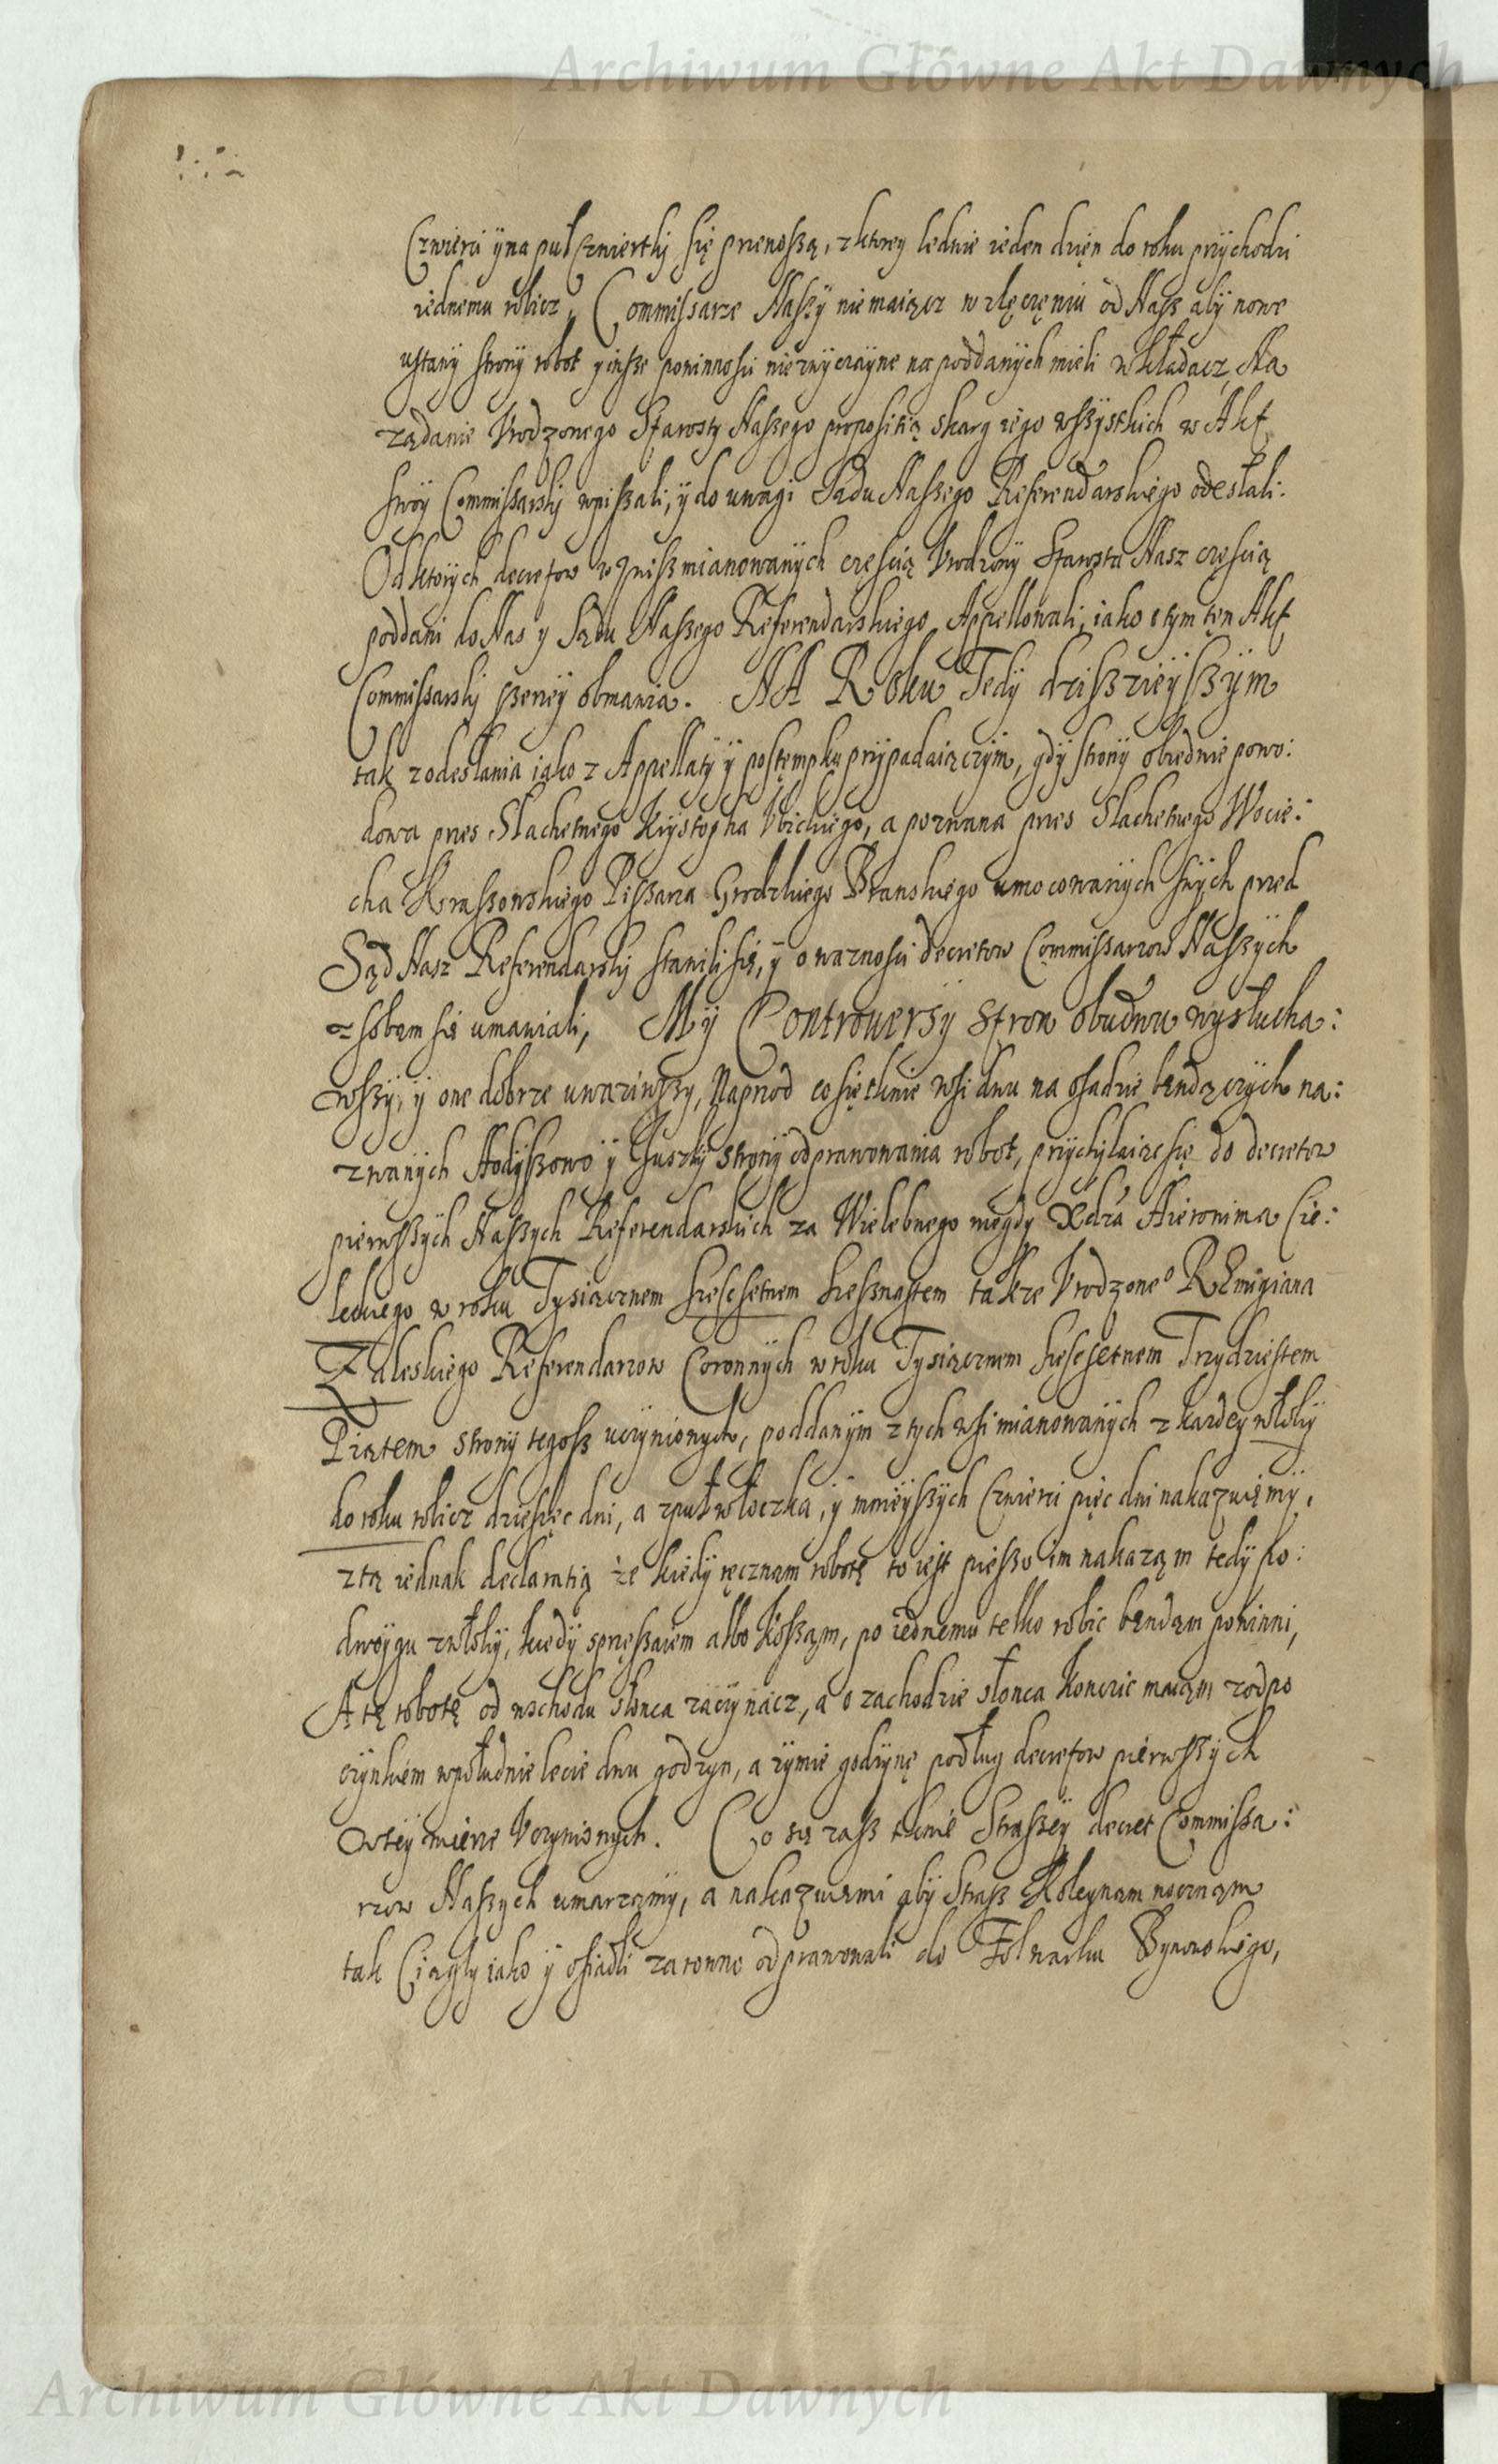 Archiwum Główne Akt Dawnych
Czwierci y na puł Czwiertki się przenoszą, z ktorey ledwie ieden dzięn do roku przychodzi
iednemu robicz, Commissarze Naszy nie maiącz w zlęcęniu od Nasz aby nowe
ustawy strony robot y insze powinnosci niezwyczayne na poddanych mieli wkładacz, Na
ządanie Vrodzonego Starosty Naszego propositią skarg iego wszystkich w Akt
swoy Commissarsky wpiszali, y do uwagi Sądu Naszego Referendarskiego odesłali.
Od ktorych decretow wznisz mianowanych częscią Vrodzony Starosta Nasz częscią
poddani do Nas y Sądu Naszego Referendarskiego Appellowali, iako o tym tęn Akt
Commissarsky szerzey obmawia. NA Roku Tedy dziszieyszym
tak z odesłania iako z Appellaty y postęmpku przypadaiączym, gdy strony obiedwie powo:
dowa przes Slachetnego Krysztopha Vbickiego, a pozwana przes Slachetnego Wocie:
cha Kraszowskiego Piszarza Grodzkiego Branskiego umocowanych swych przed
Sąd Nasz Referendarsky stawili się, y o waznosci decretow Commissarzow Naszych
z sobąm się umawiali, My Controversy stron obudwu wysłucha:
wszy, y one dobrze uwazywszy, Naprzod co się tknie wsi dwu na osadzie bęndączych na:
zwanych Hodyszowo y Guszky strony odprawowania robot, przychylaiąc się do decretow
pierwszych Naszych Referendarskich za Wielebnego niegdy Xdza Hieronima Cie:
leckiego w roku Tysiącznem szescsetnem szesznastem takze Vrodzone⁰ REmigiana
Zaleskiego Referendarzow Coronnych w roku Tysiącznem szescsetnem Trzydziestem
Piątem strony tegosz uczynionych, poddanym z tych wsi mianowanych z kazdey włoky
do roku robicz dziesięc dni, a z puł włoczka, y mnieyszych Czwierci pięc dni nakazuięmy,
z tą iednak declaratią że kiedy ręcznąm robotę to iest pieszo im nakaząm tedy po:
dwoygu z włoky, kiedy sprzęszaiem albo Kosząm, po iednemu telko robic bęndąm powinni,
A tę robotę od wschodu słonca zaczynacz, a o zachodzie słonca konczic maiąm z odpo
czynkiem w południe lecie dwu godzyn, a zymie godzynę podług decretow pierwszych
w tey mierze Vczynionych. Co się zasz tknie Straszey decret Commissa:
rzow Naszych umarzamy, a nakazuiemi aby Strasz Koleynąm nocznąm
tak Ciągły iako y osiadli zarowno odprawowali do Folwarku Pynowskiego,
Archiwum Główne Akt Dawnych